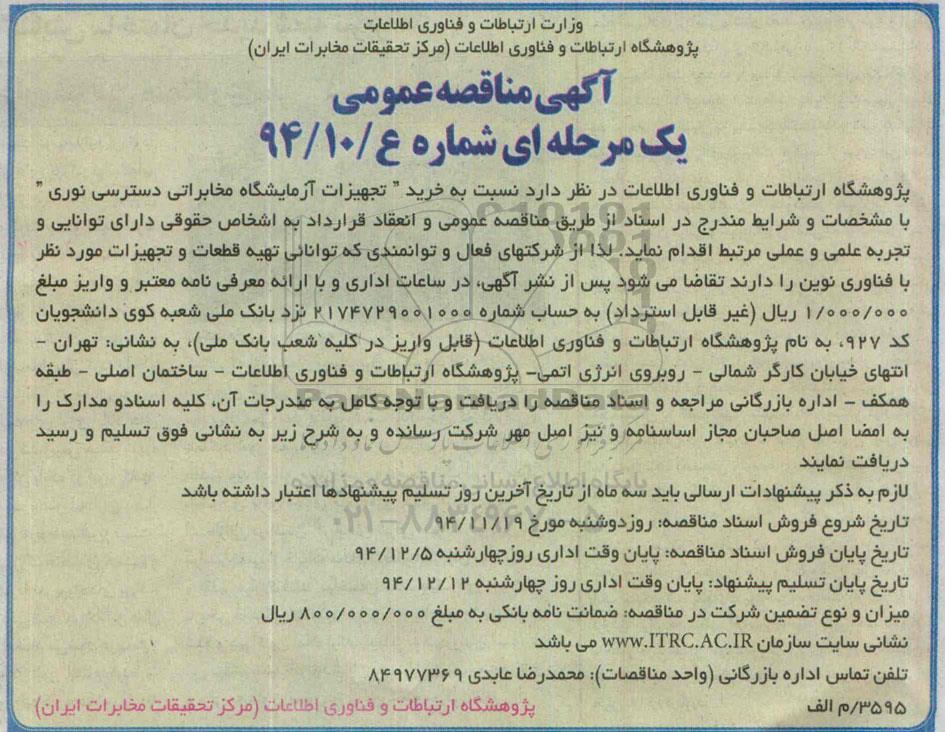 وزارت ارتباطات و فناوری اطلاعات
پژوهشگاه ارتباطات و فناوری اطلاعات (مرکز تحقیقات مخابرات ایران)
آگهی مناقصه عمومی
یک مرحله ای شماره ع/۹۴/۱۰
پژوهشگاه ارتباطات و فناوری اطلاعات در نظر دارد نسبت به خرید " تجهیزات آزمایشگاه مخابراتی دسترسی نوری "
با مشخصات و شرایط مندرج در اسناد از طریق مناقصه عمومی و انعقاد قرارداد به اشخاص حقوقی دارای توانایی و
تجربه علمی و عملی مرتبط اقدام نماید. لذا از شرکتهای فعال و توانمندی که توانائی تهیه قطعات و تجهیزات مورد نظر
با فناوری نوین را دارند تقاضا می شود پس از نشر آگهی، در ساعات اداری و با ارائه معرفی نامه معتبر و واریز مبلغ
۱/۰۰۰/۰۰۰ ریال (غیر قابل استرداد) به حساب شماره ۲۱۷۴۷۲۹۰۰۱۰۰۰ نزد بانک ملی شعبه کوی دانشجویان
کد ۹۲۷، به نام پژوهشگاه ارتباطات و فناوری اطلاعات (قابل واریز در کلیه شعب بانک ملی)، به نشانی: تهران -
انتهای خیابان کارگر شمالی - روبروی انرژی اتمی- پژوهشگاه ارتباطات و فناوری اطلاعات - ساختمان اصلی - طبقه
همکف - اداره بازرگانی مراجعه و اسناد مناقصه را دریافت و با توجه کامل به مندرجات آن، کلیه اسنادو مدارک را
به امضا اصل صاحبان مجاز اساسنامه و نیز اصل مهر شرکت رسانده و به شرح زیر به نشانی فوق تسلیم و رسید
دریافت نمایند
لازم به ذکر پیشنهادات ارسالی باید سه ماه از تاریخ آخرین روز تسلیم پیشنهادها اعتبار داشته باشد
تاریخ شروع فروش اسناد مناقصه: روزدوشنبه مورخ ۹۴/۱۱/۱۹
تاریخ پایان فروش اسناد مناقصه: پایان وقت اداری روزچهارشنبه ۹۴/۱۲/۵
تاریخ پایان تسلیم پیشنهاد: پایان وقت اداری روز چهارشنبه ۹۴/۱۲/۱۲
میزان و نوع تضمین شرکت در مناقصه: ضمانت نامه بانکی به مبلغ ۸۰۰/۰۰۰/۰۰۰ ریال
نشانی سایت سازمان www.ITRC.AC.IR می باشد
تلفن تماس اداره بازرگانی (واحد مناقصات): محمدرضا عابدی ۸۴۹۷۷۳۶۹
۳۵۹۵/م الف
پژوهشگاه ارتباطات و فناوری اطلاعات (مرکز تحقیقات مخابرات ایران)